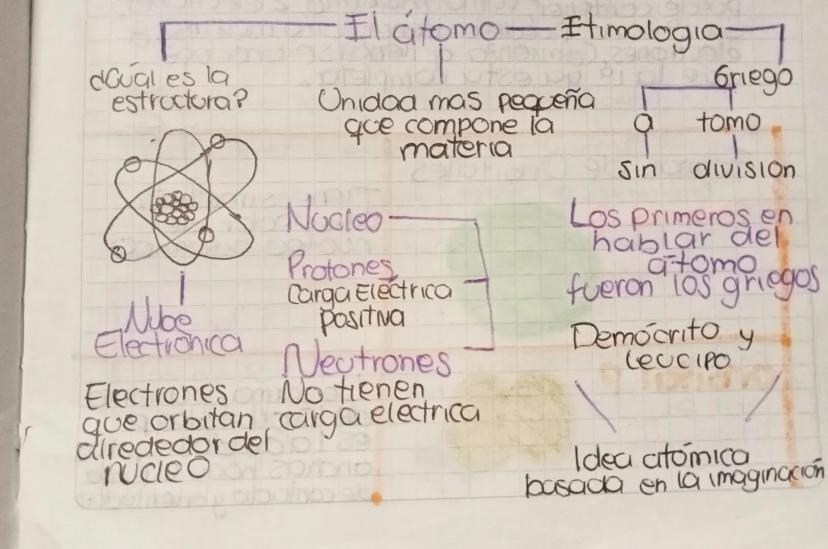 El átomo
Etimologia
¿Cuál es la
estructura?
Unidad mas pequeña
que compone la
materia
Griego
a tomo
sin division
Nucleo
Protones
Carga Eléctrica
Positiva
Neutrones
No tienen
carga electrica
Nube
Electronica
Electrones
que orbitan
alrededor del
nucleo
Los primeros en
hablar del
átomo
fueron los griegos
Demócrito y
Leucipo
Idea atómica
basada en la imaginación